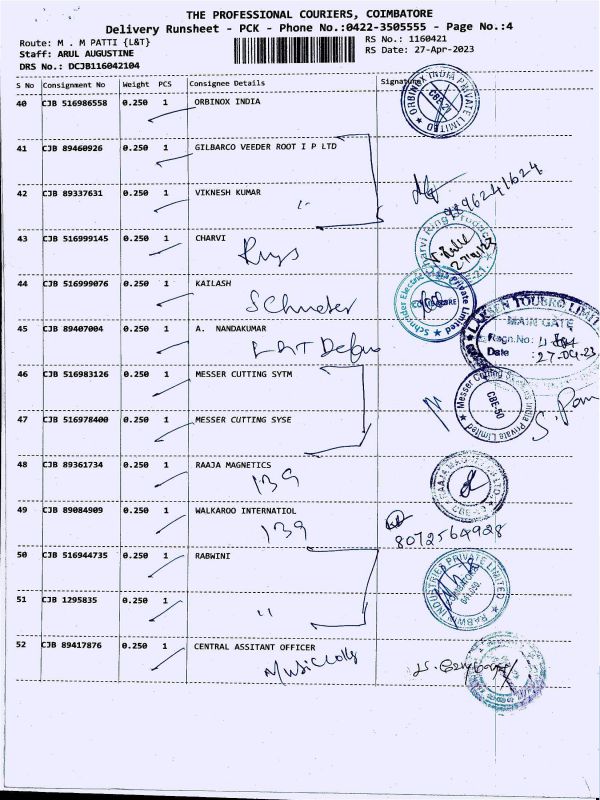 THE PROFESSIONAL COURIERS, COIMBATORE
Delivery Runsheet - PCK - Phone No.:0422-3505555 - Page No.:4
Route: M . M PATTI {L&T} RS No.: 1160421
Staff: ARUL AUGUSTINE RS Date: 27-Apr-2023
DRS No.: DCJB116042104
S No Consignment No Weight PCS Consignee Details Signature
40 CJB 516986558 0.250 1 ORBINOX INDIA
ORBINOX INDIA PRIVATE LIMITED
CBE-21
41 CJB 89460926 0.250 1 GILBARCO VEEDER ROOT I P LTD
42 CJB 89337631 0.250 1 VIKNESH KUMAR
"
9896241624
43 CJB 516999145 0.250 1 CHARVI
Rings
Charvi Ring
44 CJB 516999076 0.250 1 KAILASH
Schneider
Schneider Electric Private Limited
COIMBATORE
45 CJB 89407004 0.250 1 A. NANDAKUMAR
L&T Defen
LARSEN TOUBRO LIMITED
MAIN GATE
Regn.No:
Date : 27-04-23
46 CJB 516983126 0.250 1 MESSER CUTTING SYTM
Messer Cutting India Private Limited
CBE-50
47 CJB 516978400 0.250 1 MESSER CUTTING SYSE
48 CJB 89361734 0.250 1 RAAJA MAGNETICS
139
RAAJA MAGNETICS LTD
49 CJB 89084909 0.250 1 WALKAROO INTERNATIOL
139
8072564928
50 CJB 516944735 0.250 1 RABWINI
RABWIN INDUSTRIES PRIVATE LIMITED
51 CJB 1295835 0.250 1
"
52 CJB 89417876 0.250 1 CENTRAL ASSITANT OFFICER